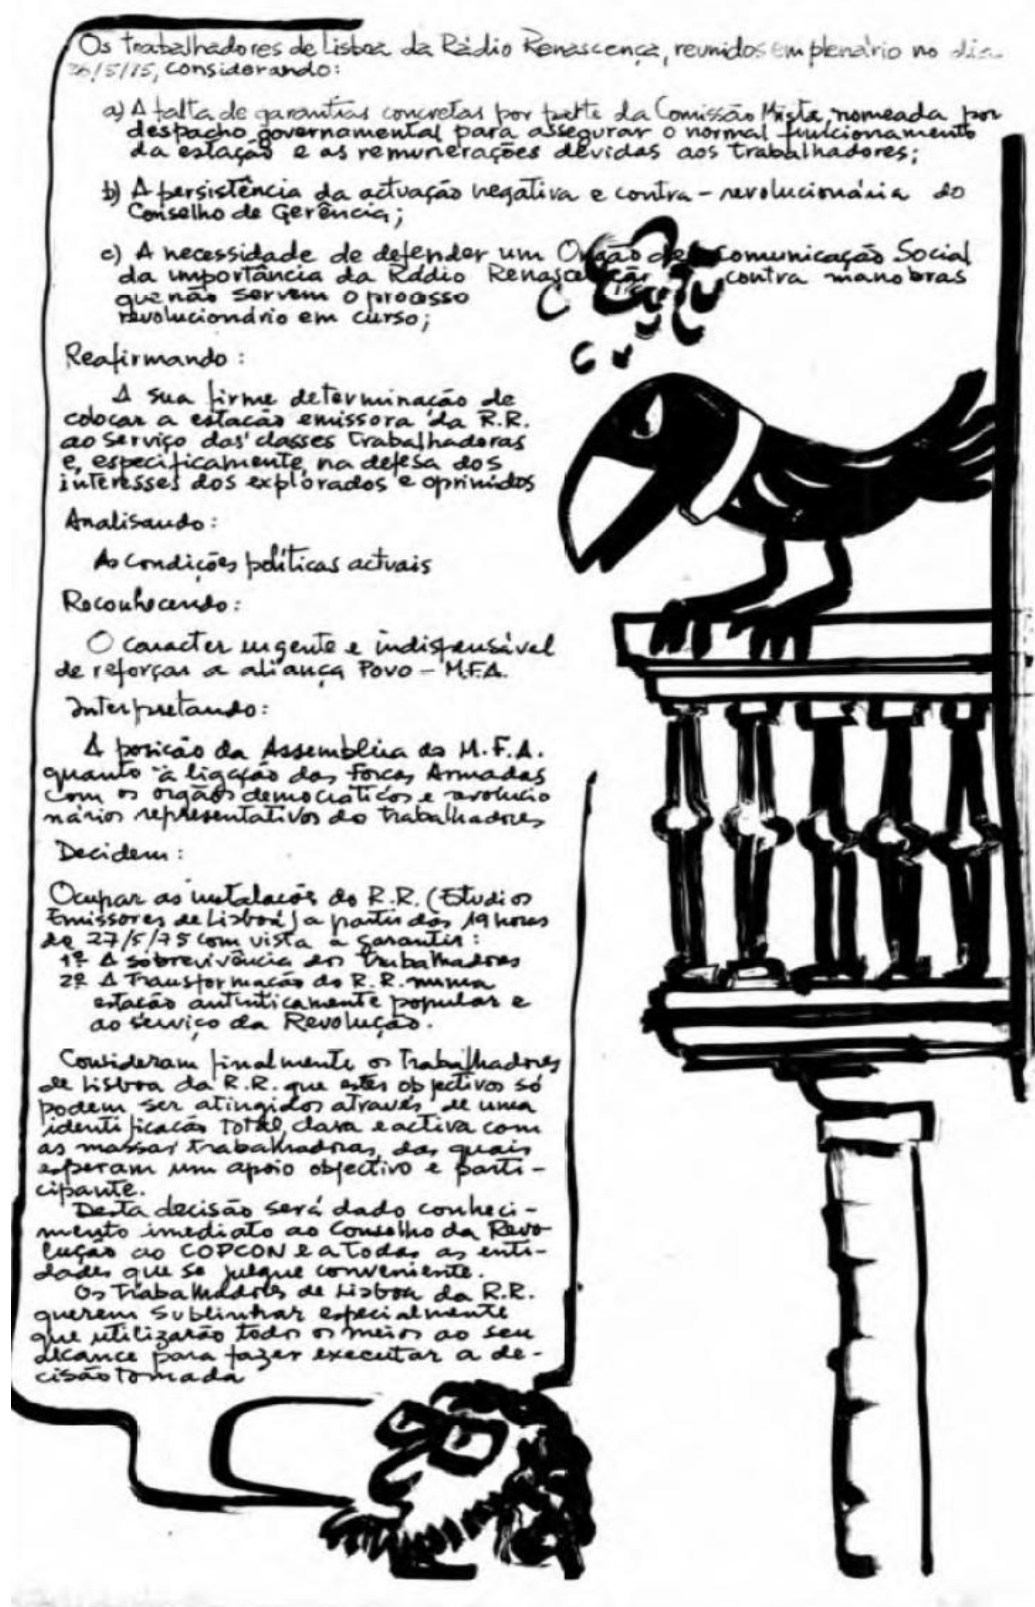 Os trabalhadores de Lisboa da Rádio Renascença, reunidos em plenário no dia
26/5/75, considerando:
a) A falta de garantias concretas por parte da Comissão Mista, nomeada por
despacho governamental para assegurar o normal funcionamento
da estação e as remunerações devidas aos trabalhadores;
b) A persistência da actuação negativa e contra-revolucionária do
Conselho de Gerência;
c) A necessidade de defender um Orgão de Comunicação Social
da importância da Rádio Renascença contra manobras
que não servem o processo
revolucionário em curso;
Reafirmando:
A sua firme determinação de
colocar a estação emissora da R.R.
ao serviço das classes trabalhadoras
e, especificamente, na defesa dos
interesses dos explorados e oprimidos
Analisando:
As condições políticas actuais
Reconhecendo:
O caracter urgente e indispensável
de reforçar a aliança Povo - M.F.A.
Interpretando:
A posição da Assembleia do M.F.A.
quanto à ligação das Forças Armadas
com os orgãos democráticos e revolucio
nários representativos do trabalhadores
Decidem:
Ocupar as instalaçõs do R.R. (Estudios
Emissores de Lisboa) a partir das 19 horas
de 27/5/75 com vista a garantir:
1º A sobrevivência dos trabalhadores
2º A Transformação do R.R. numa
estação autênticamente popular e
ao serviço da Revolução.
Consideram finalmente os Trabalhadores
de Lisboa da R.R. que estes objectivos só
podem ser atingidos através de uma
identificação total, clara e activa com
as massas trabalhadoras, das quais
esperam um apoio objectivo e parti-
cipante.
Desta decisão será dado conheci-
mento imediato ao Conselho da Revo-
lução ao COPCON e a todas as enti-
dades que se julgue conveniente.
Os Trabalhadores de Lisboa da R.R.
querem sublinhar especialmente
que utilizarão todos os meios ao seu
alcance para fazer executar a de-
cisão tomada